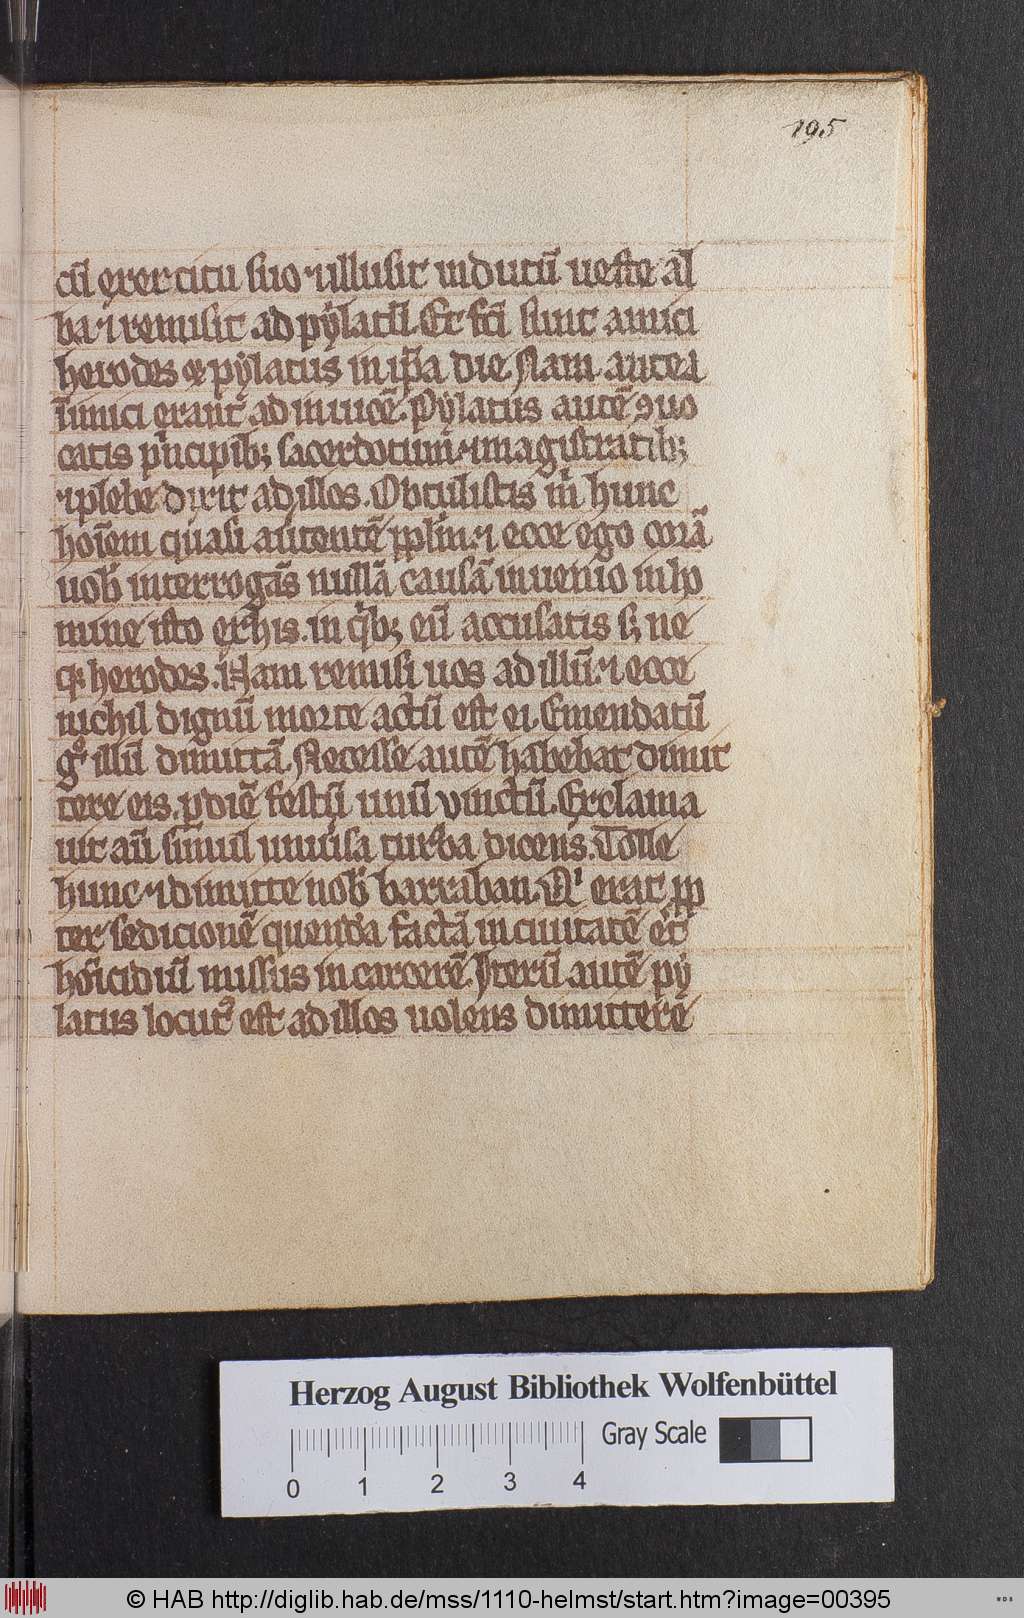 195
cū exercitu suo ⁊ illusit indutū ueste al
ba ⁊ remisit ad pẏlatū. Et fc̄i sunt amici
herodes et pẏlatus in ip̄a die. Nam antea
inimici erant ad inuicē. Pẏlatus autē ꝯuo
catis pͥncipib; sacerdotum ⁊ magistratib;
⁊ plebe dixit ad illos. Obtulistis m̄ hunc
hoīem quasi auertentē pp̄lm ⁊ ecce ego corā
uob̄ interrogās nullā causā inuenio in ho
mine isto ex his. in qͥb; eū accusatis s; ne
qꝫ herodes. Nam remisi uos ad illū ⁊ ecce
nichil dignū morte actū est ei. Emendatū
gͦ illū dimittā. Necesse autē habebat dimit
tere eis. ꝑ diē festū unū vinctū. Exclama
uit aū simul uniu͛sa turba dicens. Tolle
hunc ⁊ dimitte nob̄ barraban. Qͥ erat ꝓp
ter sedicionē quenda factā in ciuitatē et
hoīcidiū missus in carcerē. Iterū autē pẏ
latus locutꝰ est ad illos uolens dimittere
Herzog August Bibliothek Wolfenbüttel
Gray Scale
0 1 2 3 4
© HAB http://diglib.hab.de/mss/1110-helmst/start.htm?image=00395